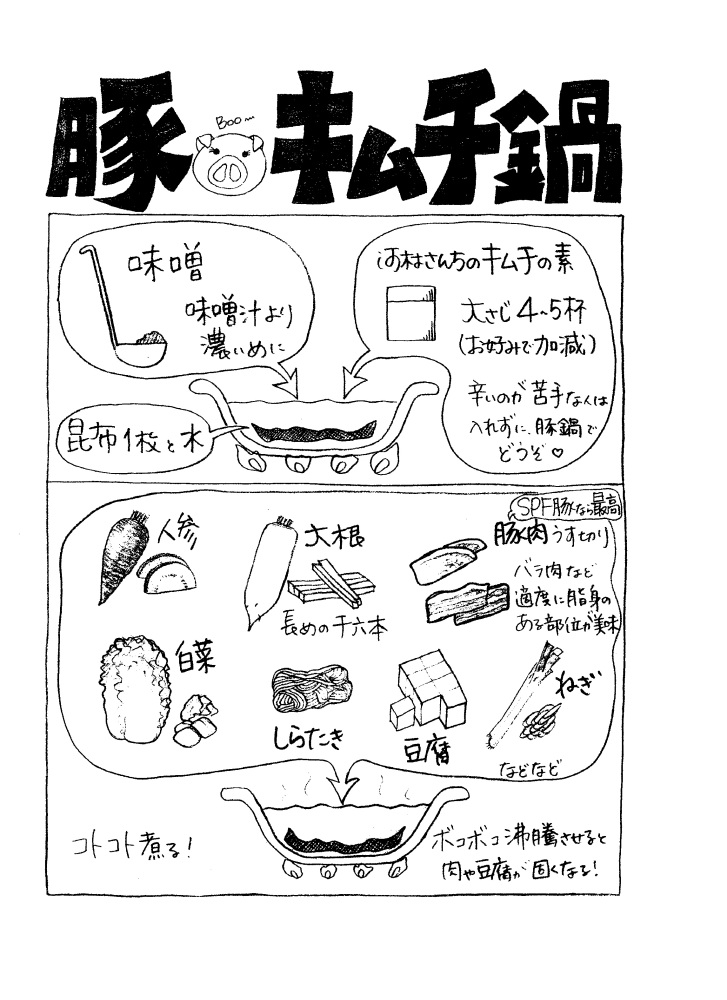 豚キムチ鍋
Boo〜
味噌
味噌汁より
濃いめに
河村さんちのキムチの素
大さじ4〜5杯
(お好みで加減)
辛いのが苦手な人は
入れずに、豚鍋で
どうぞ♡
昆布1枚と水
人参
大根
長めの千六本
SPF豚なら最高
豚肉うす切り
バラ肉など
適度に脂身の
ある部位が美味
白菜
しらたき
豆腐
ねぎ
などなど
コトコト煮る!
ボコボコ沸騰させると
肉や豆腐が固くなる!